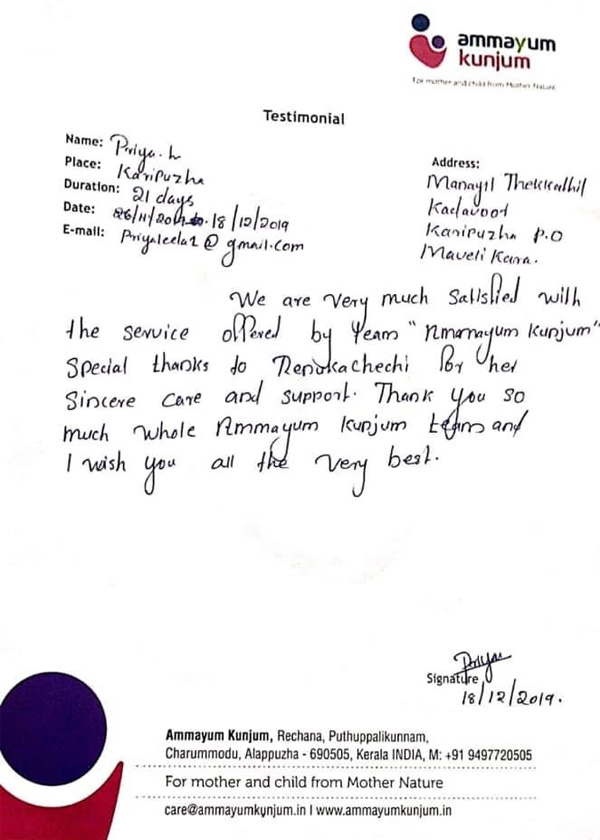 ammayum
kunjum
For mother and child from Mother Nature
Testimonial
Name: Priya. L
Place: Karipuzha
Duration: 21 days
Date: 26/11/2019 to 18/12/2019
E-mail: Priyaleela1@gmail.com
Address:
Manayil Thekkathil
Kadavoor
Karipuzha P.O
Mavelikara.
We are very much satisfied with
the service offered by team "Ammayum Kunjum"
Special thanks to Renukachechi for her
Sincere care and support. Thank you so
much whole Ammayum Kunjum team and
I wish you all the very best.
Priya
Signature
18/12/2019.
Ammayum Kunjum, Rechana, Puthuppalikunnam,
Charummodu, Alappuzha - 690505, Kerala INDIA, M: +91 9497720505
For mother and child from Mother Nature
care@ammayumkunjum.in I www.ammayumkunjum.in